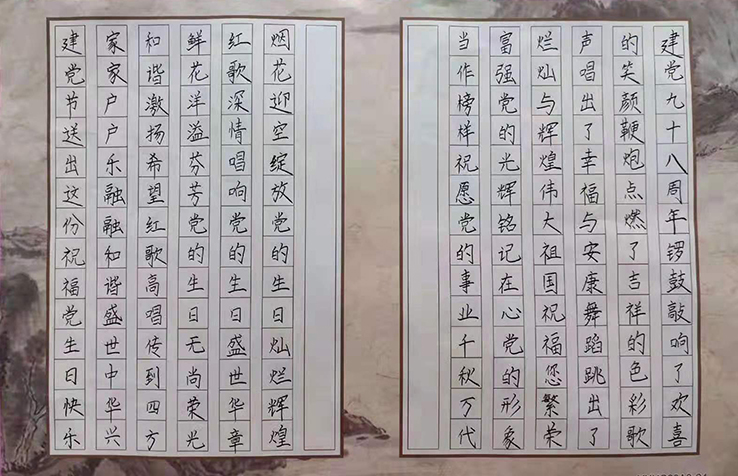 建党九十八周年锣鼓敲响了欢喜
的笑颜鞭炮点燃了吉祥的色彩歌
声唱出了幸福与安康舞蹈跳出了
烂灿与辉煌伟大祖国祝福您繁荣
富强党的光辉铭记在心党的形象
当作榜样祝愿党的事业千秋万代
烟花迎空绽放党的生日灿烂辉煌
红歌深情唱响党的生日盛世华章
鲜花洋溢芬芳党的生日无尚荣光
和谐激扬希望红歌高唱传到四方
家家户户乐融融和谐盛世中华兴
建党节送出这份祝福党生日快乐